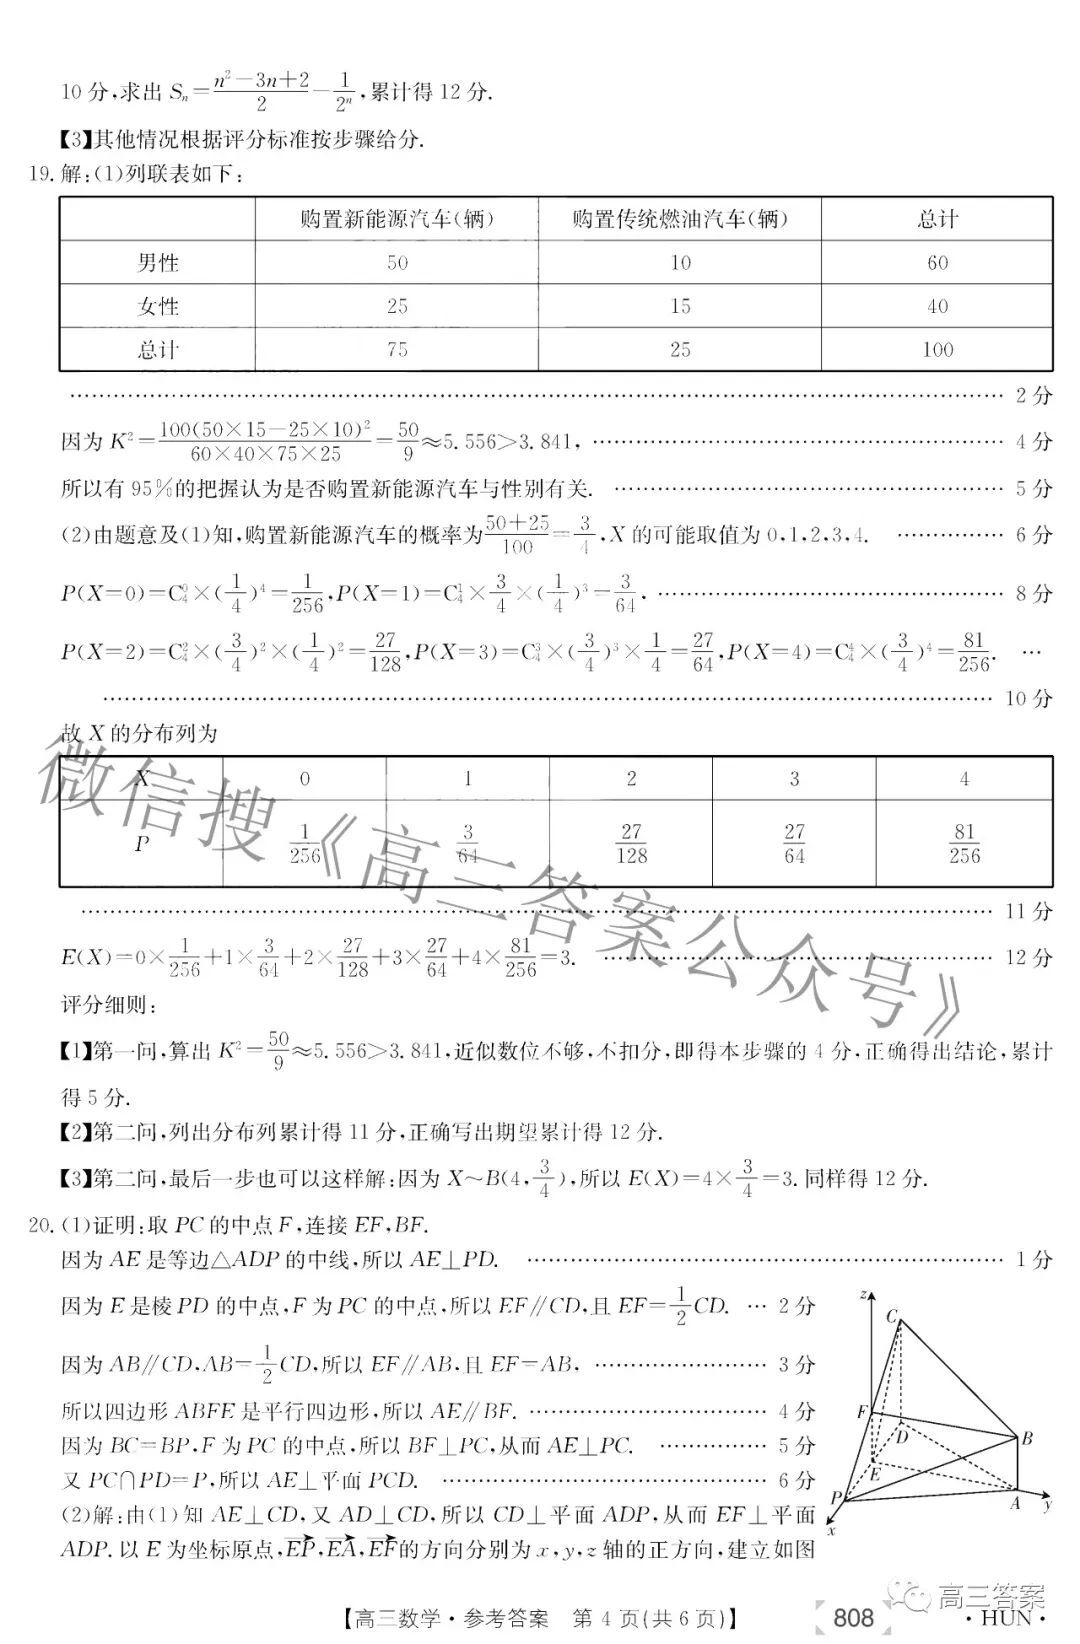 10 分,求出 Sₙ=\frac{n²-3n+2}{2}-\frac{1}{2ⁿ},累计得 12 分.
【3】其他情况根据评分标准按步骤给分.
19. 解:(1)列联表如下:
购置新能源汽车(辆) 购置传统燃油汽车(辆) 总计
男性 50 10 60
女性 25 15 40
总计 75 25 100
…… 2 分
因为 K²=\frac{100(50×15-25×10)²}{60×40×75×25}=\frac{50}{9}≈5.556>3.841, …… 4 分
所以有 95%的把握认为是否购置新能源汽车与性别有关. …… 5 分
(2)由题意及(1)知,购置新能源汽车的概率为\frac{50+25}{100}=\frac{3}{4},X 的可能取值为 0,1,2,3,4. …… 6 分
P(X=0)=C₄⁰×(\frac{1}{4})⁴=\frac{1}{256},P(X=1)=C₄¹×\frac{3}{4}×(\frac{1}{4})³=\frac{3}{64}, …… 8 分
P(X=2)=C₄²×(\frac{3}{4})²×(\frac{1}{4})²=\frac{27}{128},P(X=3)=C₄³×(\frac{3}{4})³×\frac{1}{4}=\frac{27}{64},P(X=4)=C₄⁴×(\frac{3}{4})⁴=\frac{81}{256}. …
…… 10 分
故 X 的分布列为
X 0 1 2 3 4
P \frac{1}{256} \frac{3}{64} \frac{27}{128} \frac{27}{64} \frac{81}{256}
…… 11 分
E(X)=0×\frac{1}{256}+1×\frac{3}{64}+2×\frac{27}{128}+3×\frac{27}{64}+4×\frac{81}{256}=3. …… 12 分
评分细则:
【1】第一问,算出 K²=\frac{50}{9}≈5.556>3.841,近似数位不够,不扣分,即得本步骤的 4 分,正确得出结论,累计
得 5 分.
【2】第二问,列出分布列累计得 11 分,正确写出期望累计得 12 分.
【3】第二问,最后一步也可以这样解:因为 X~B(4,\frac{3}{4}),所以 E(X)=4×\frac{3}{4}=3. 同样得 12 分.
20. (1)证明:取 PC 的中点 F,连接 EF,BF.
因为 AE 是等边△ADP 的中线,所以 AE⊥PD. …… 1 分
因为 E 是棱 PD 的中点,F 为 PC 的中点,所以 EF∥CD,且 EF=\frac{1}{2}CD. … 2 分
因为 AB∥CD,AB=\frac{1}{2}CD,所以 EF∥AB,且 EF=AB, …… 3 分
所以四边形 ABFE 是平行四边形,所以 AE∥BF. …… 4 分
因为 BC=BP,F 为 PC 的中点,所以 BF⊥PC,从而 AE⊥PC. …… 5 分
又 PC∩PD=P,所以 AE⊥平面 PCD. …… 6 分
(2)解:由(1)知 AE⊥CD,又 AD⊥CD,所以 CD⊥平面 ADP,从而 EF⊥平面
ADP. 以 E 为坐标原点,\overrightarrow{EP},\overrightarrow{EA},\overrightarrow{EF}的方向分别为 x,y,z 轴的正方向,建立如图
z
C
F
D
B
E
P
A
y
x
微信搜《高三答案公众号》
【高三数学·参考答案 第 4 页(共 6 页)】
808
·HUN·
高三答案